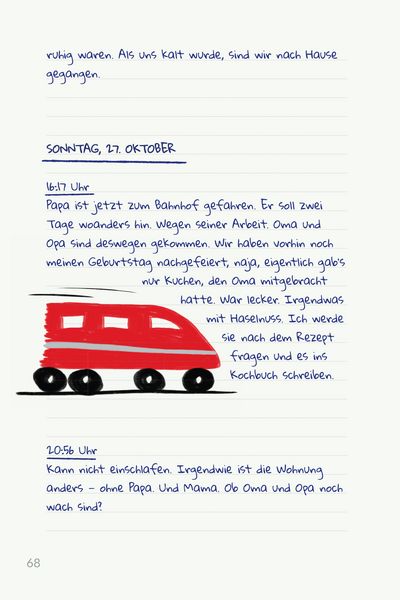 ruhig waren. Als uns kalt wurde, sind wir nach Hause
gegangen.
SONNTAG, 27. OKTOBER
16:17 Uhr
Papa ist jetzt zum Bahnhof gefahren. Er soll zwei
Tage woanders hin. Wegen seiner Arbeit. Oma und
Opa sind deswegen gekommen. Wir haben vorhin noch
meinen Geburtstag nachgefeiert, naja, eigentlich gab's
nur Kuchen, den Oma mitgebracht
hatte. War lecker. Irgendwas
mit Haselnuss. Ich werde
sie nach dem Rezept
fragen und es ins
Kochbuch schreiben.
20:56 Uhr
Kann nicht einschlafen. Irgendwie ist die Wohnung
anders – ohne Papa. Und Mama. Ob Oma und Opa noch
wach sind?
68